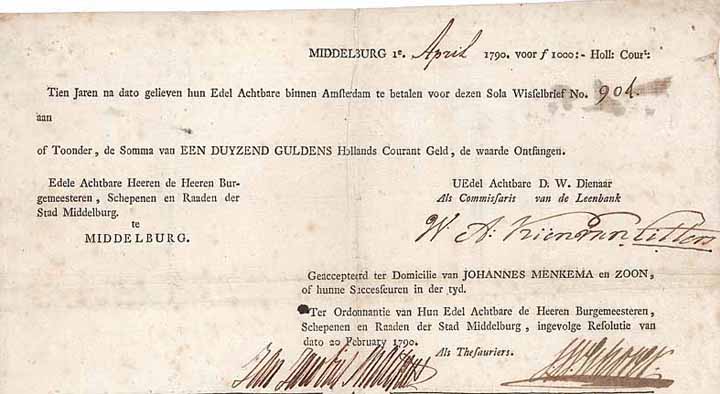 MIDDELBURG 1e. April 1790. voor ƒ 1000:- Holl: Courᵗ:
Tien Jaren na dato gelieven hun Edel Achtbare binnen Amsterdam te betalen voor dezen Sola Wisselbrief No. 904.
aan
of Toonder, de Somma van EEN DUYZEND GULDENS Hollands Courant Geld, de waarde Ontfangen.
Edele Achtbare Heeren de Heeren Bur-
gemeesteren, Schepenen en Raaden der
Stad Middelburg.
te
MIDDELBURG.
UEdel Achtbare D. W. Dienaar
Als Commissaris van de Leenbank
W. A:
Geaccepteerd ter Domicilie van JOHANNES MENKEMA en ZOON,
of hunne Successeuren in der tyd.
Ter Ordonnantie van Hun Edel Achtbare de Heeren Burgemeesteren,
Schepenen en Raaden der Stad Middelburg, ingevolge Resolutie van
dato 20 February 1790.
Als Thesauriers.